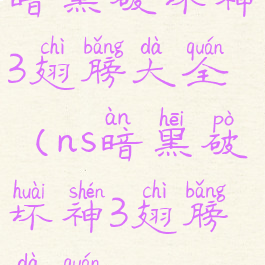 暗黑破坏神
chì bǎng dà quán
3翅膀大全
àn hēi pò
(ns暗黑破
huài shén chì bǎng
坏神3翅膀
dà quán